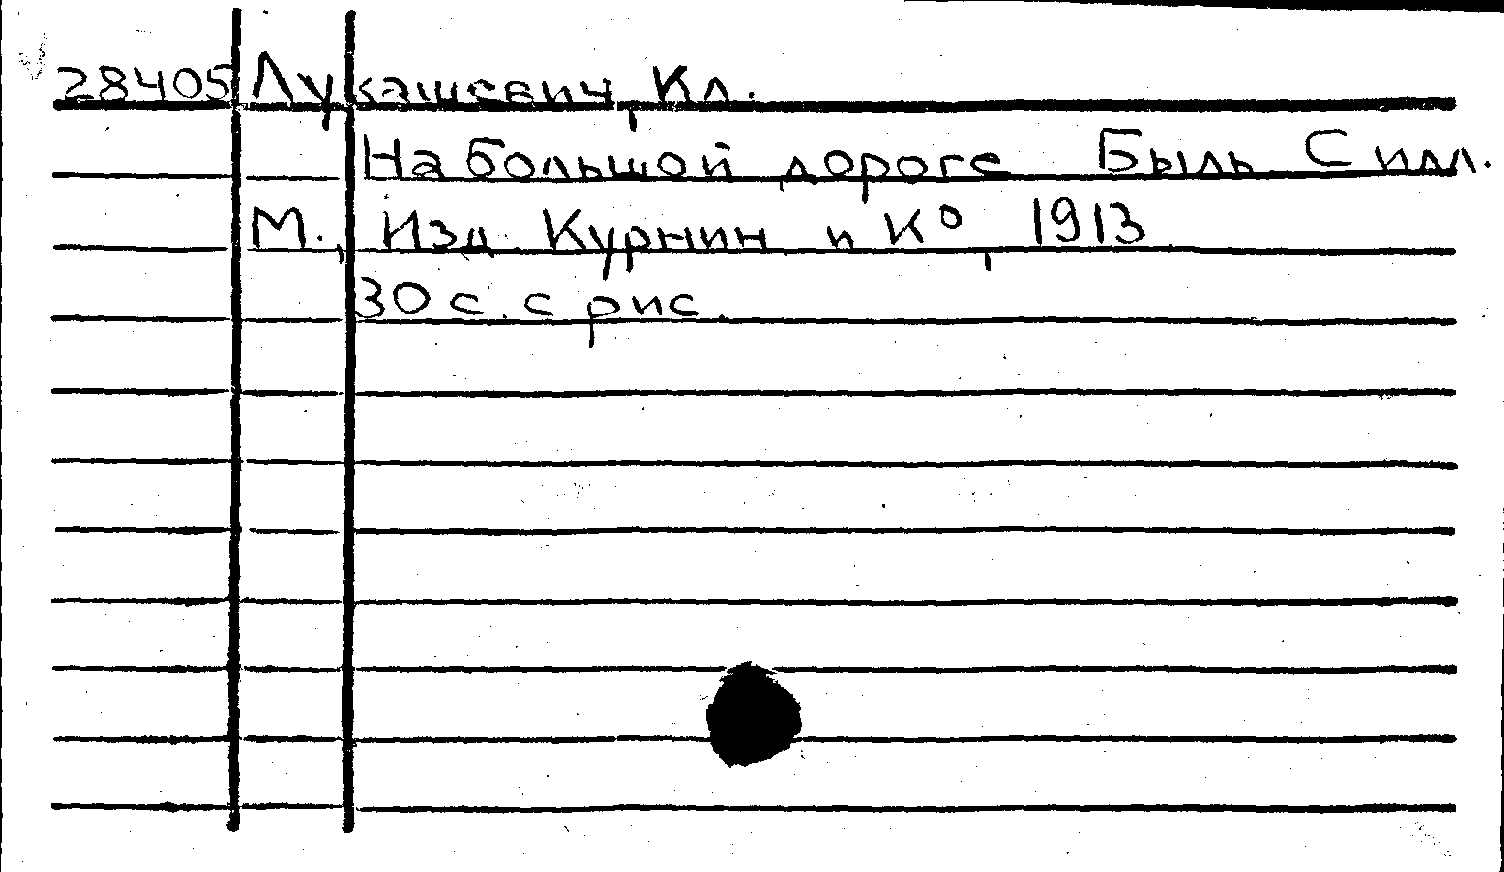 28405 Лукашевич, Кл.
На большой дороге Быль С илл.
М., Изд. Курнин и К°, 1913
30 с. с рис.